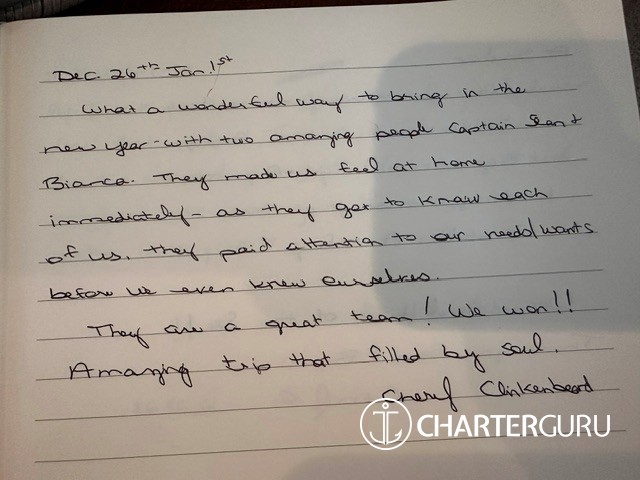 Dec. 26th Jan. 1st
What a wonderful way to bring in the
new year - with two amazing people Captain Sean &
Bianca. They made us feel at home
immediately - as they got to know each
of us, they paid attention to our needs/wants
before we even knew ourselves.
They are a great team! We won!!
Amazing trip that filled by soul.
Cheryl Clinkenbeard
CHARTERGURU